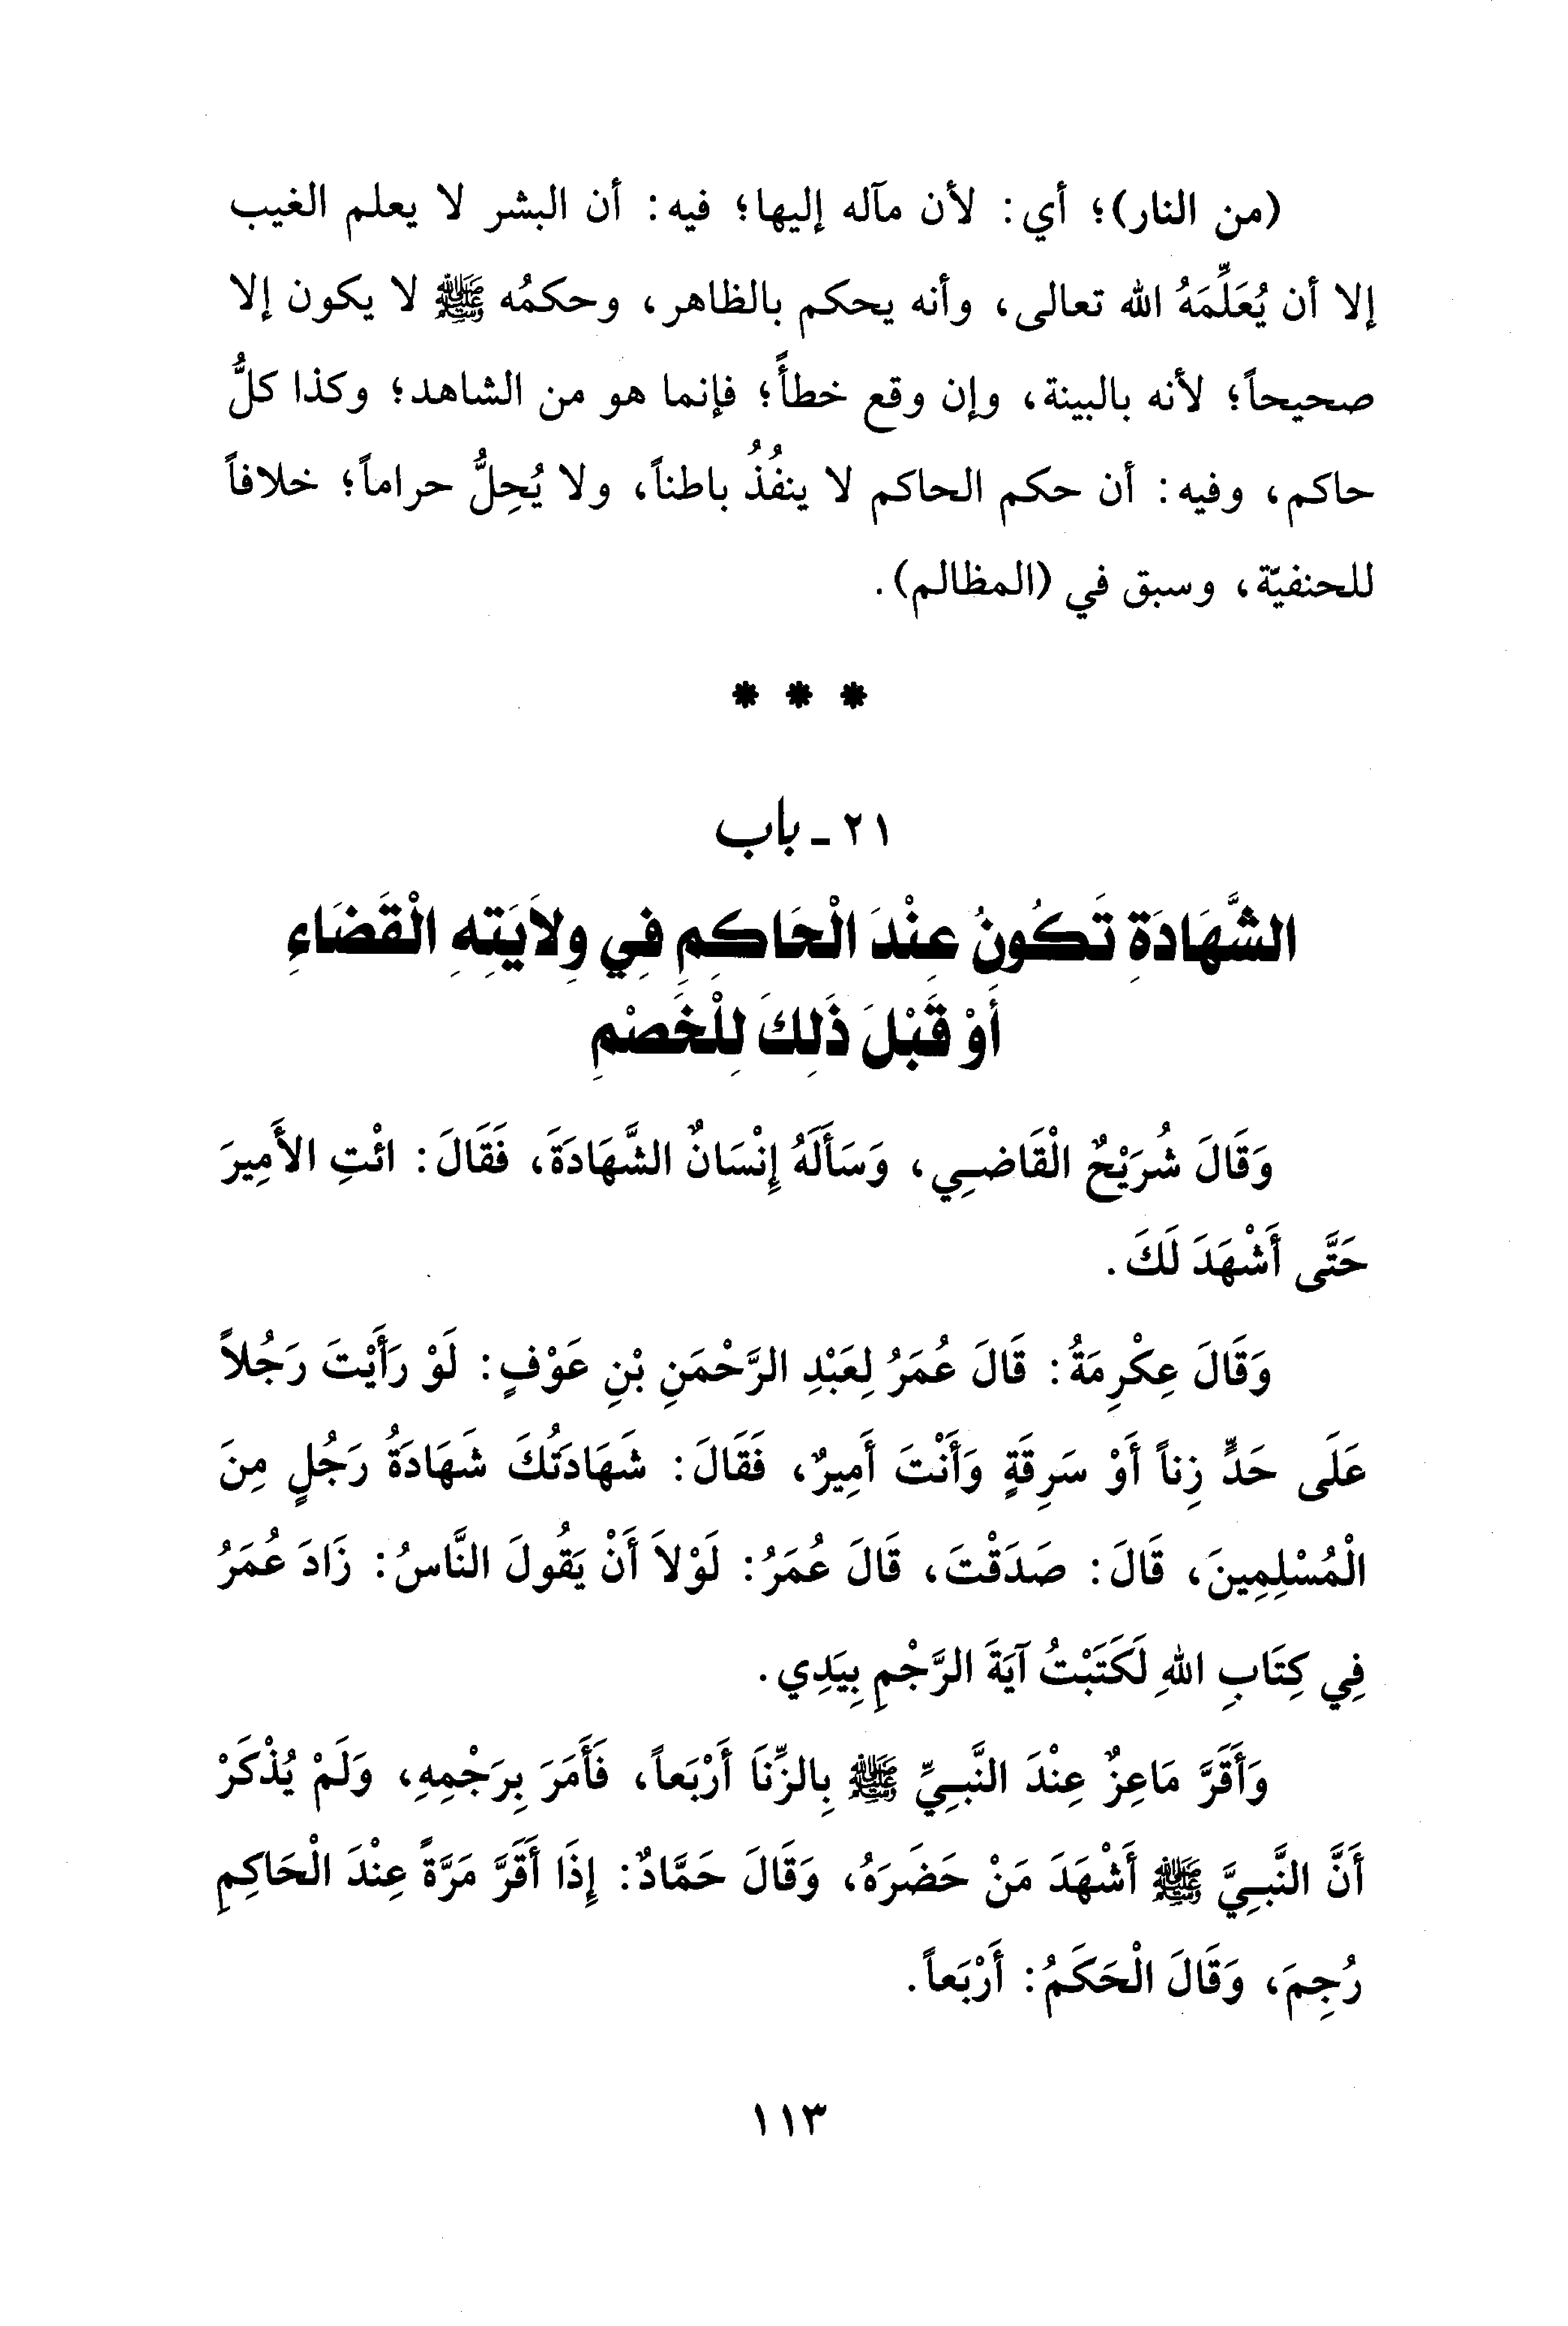 (من النار)؛ أي: لأن مآله إليها؛ فيه: أن البشر لا يعلم الغيب
إلا أن يُعَلِّمَهُ الله تعالى، وأنه يحكم بالظاهر، وحكمُه ﷺ لا يكون إلا
صحيحاً؛ لأنه بالبينة، وإن وقع خطأً؛ فإنما هو من الشاهد؛ وكذا كلُّ
حاكم، وفيه: أن حكم الحاكم لا ينفُذُ باطناً، ولا يُحِلُّ حراماً؛ خلافاً
للحنفيّة، وسبق في (المظالم).
* * *
٢١ - باب
الشَّهَادَةِ تَكُونُ عِنْدَ الْحَاكِمِ فِي وِلاَيَتِهِ الْقَضَاءِ
أَوْ قَبْلَ ذَلِكَ لِلْخَصْمِ
وَقَالَ شُرَيْحٌ الْقَاضِي، وَسَأَلَهُ إِنْسَانٌ الشَّهَادَةَ، فَقَالَ: ائْتِ الأَمِيرَ
حَتَّى أَشْهَدَ لَكَ.
وَقَالَ عِكْرِمَةُ: قَالَ عُمَرُ لِعَبْدِ الرَّحْمَنِ بْنِ عَوْفٍ: لَوْ رَأَيْتَ رَجُلاً
عَلَى حَدٍّ زِناً أَوْ سَرِقَةٍ وَأَنْتَ أَمِيرٌ، فَقَالَ: شَهَادَتُكَ شَهَادَةُ رَجُلٍ مِنَ
الْمُسْلِمِينَ، قَالَ: صَدَقْتَ، قَالَ عُمَرُ: لَوْلاَ أَنْ يَقُولَ النَّاسُ: زَادَ عُمَرُ
فِي كِتَابِ اللهِ لَكَتَبْتُ آيَةَ الرَّجْمِ بِيَدِي.
وَأَقَرَّ مَاعِزٌ عِنْدَ النَّبِيِّ ﷺ بِالزِّنَا أَرْبَعاً، فَأَمَرَ بِرَجْمِهِ، وَلَمْ يُذْكَرْ
أَنَّ النَّبِيَّ ﷺ أَشْهَدَ مَنْ حَضَرَهُ، وَقَالَ حَمَّادٌ: إِذَا أَقَرَّ مَرَّةً عِنْدَ الْحَاكِمِ
رُجِمَ، وَقَالَ الْحَكَمُ: أَرْبَعاً.
١١٣